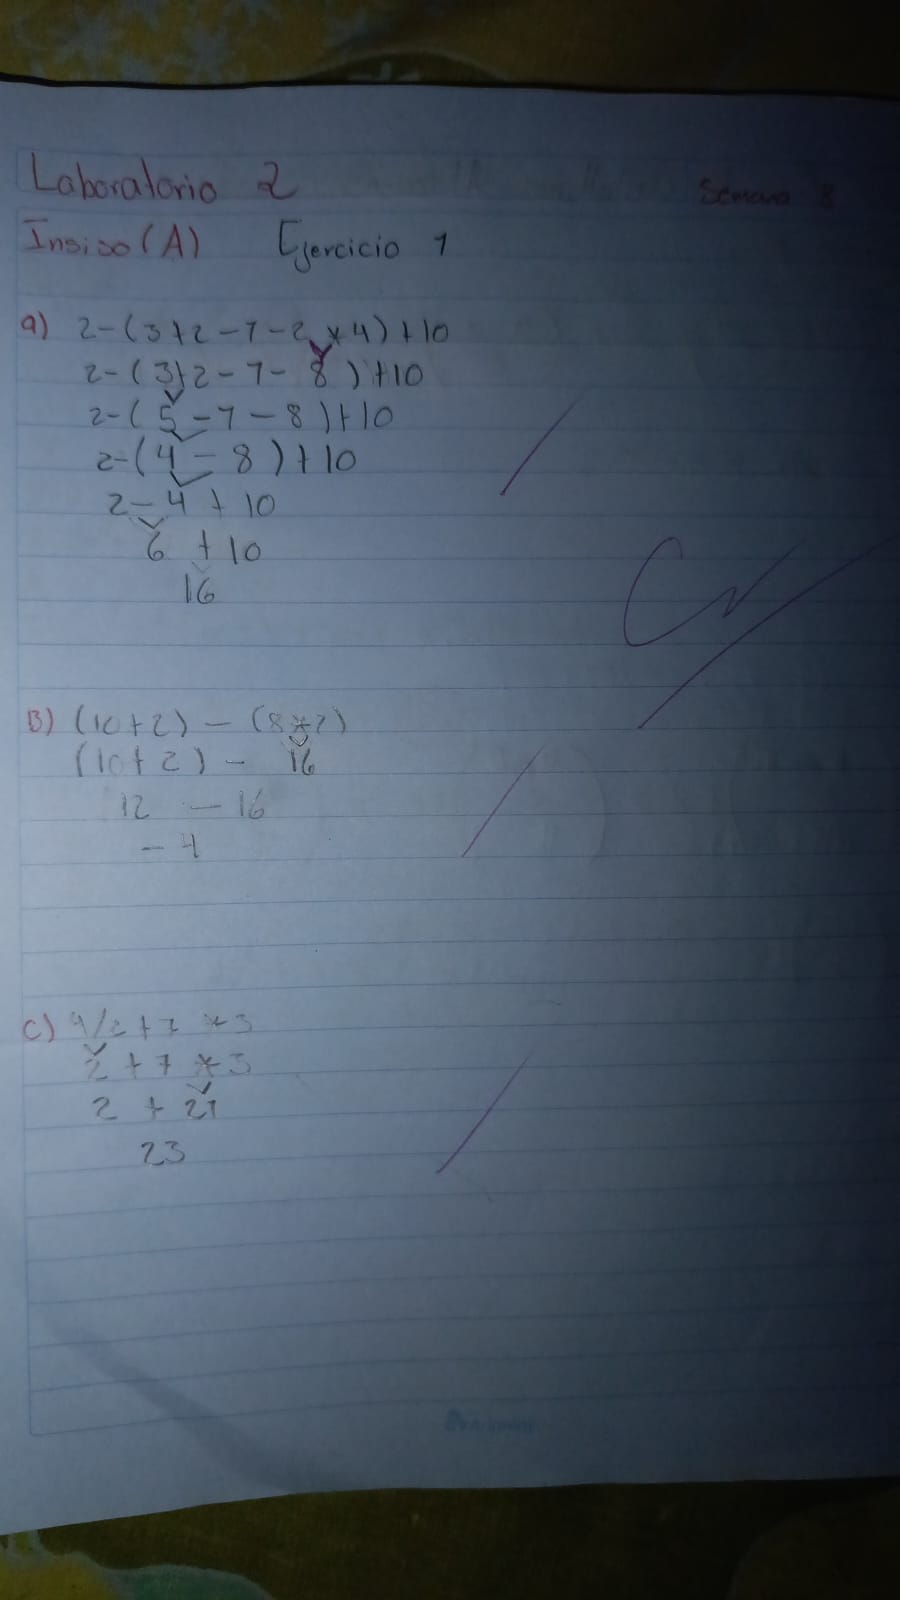 Laboratorio 2
Semana 8
Insiso (A) Ejercicio 1
a) 2-(3+2-1-2*4)+10
2-(3+2-1-8)+10
2-(5-1-8)+10
2-(4-8)+10
2-4+10
6+10
16
B) (10+2)-(8*2)
(10+2)-16
12-16
-4
C) 4/2+7*3
2+7*3
2+21
23